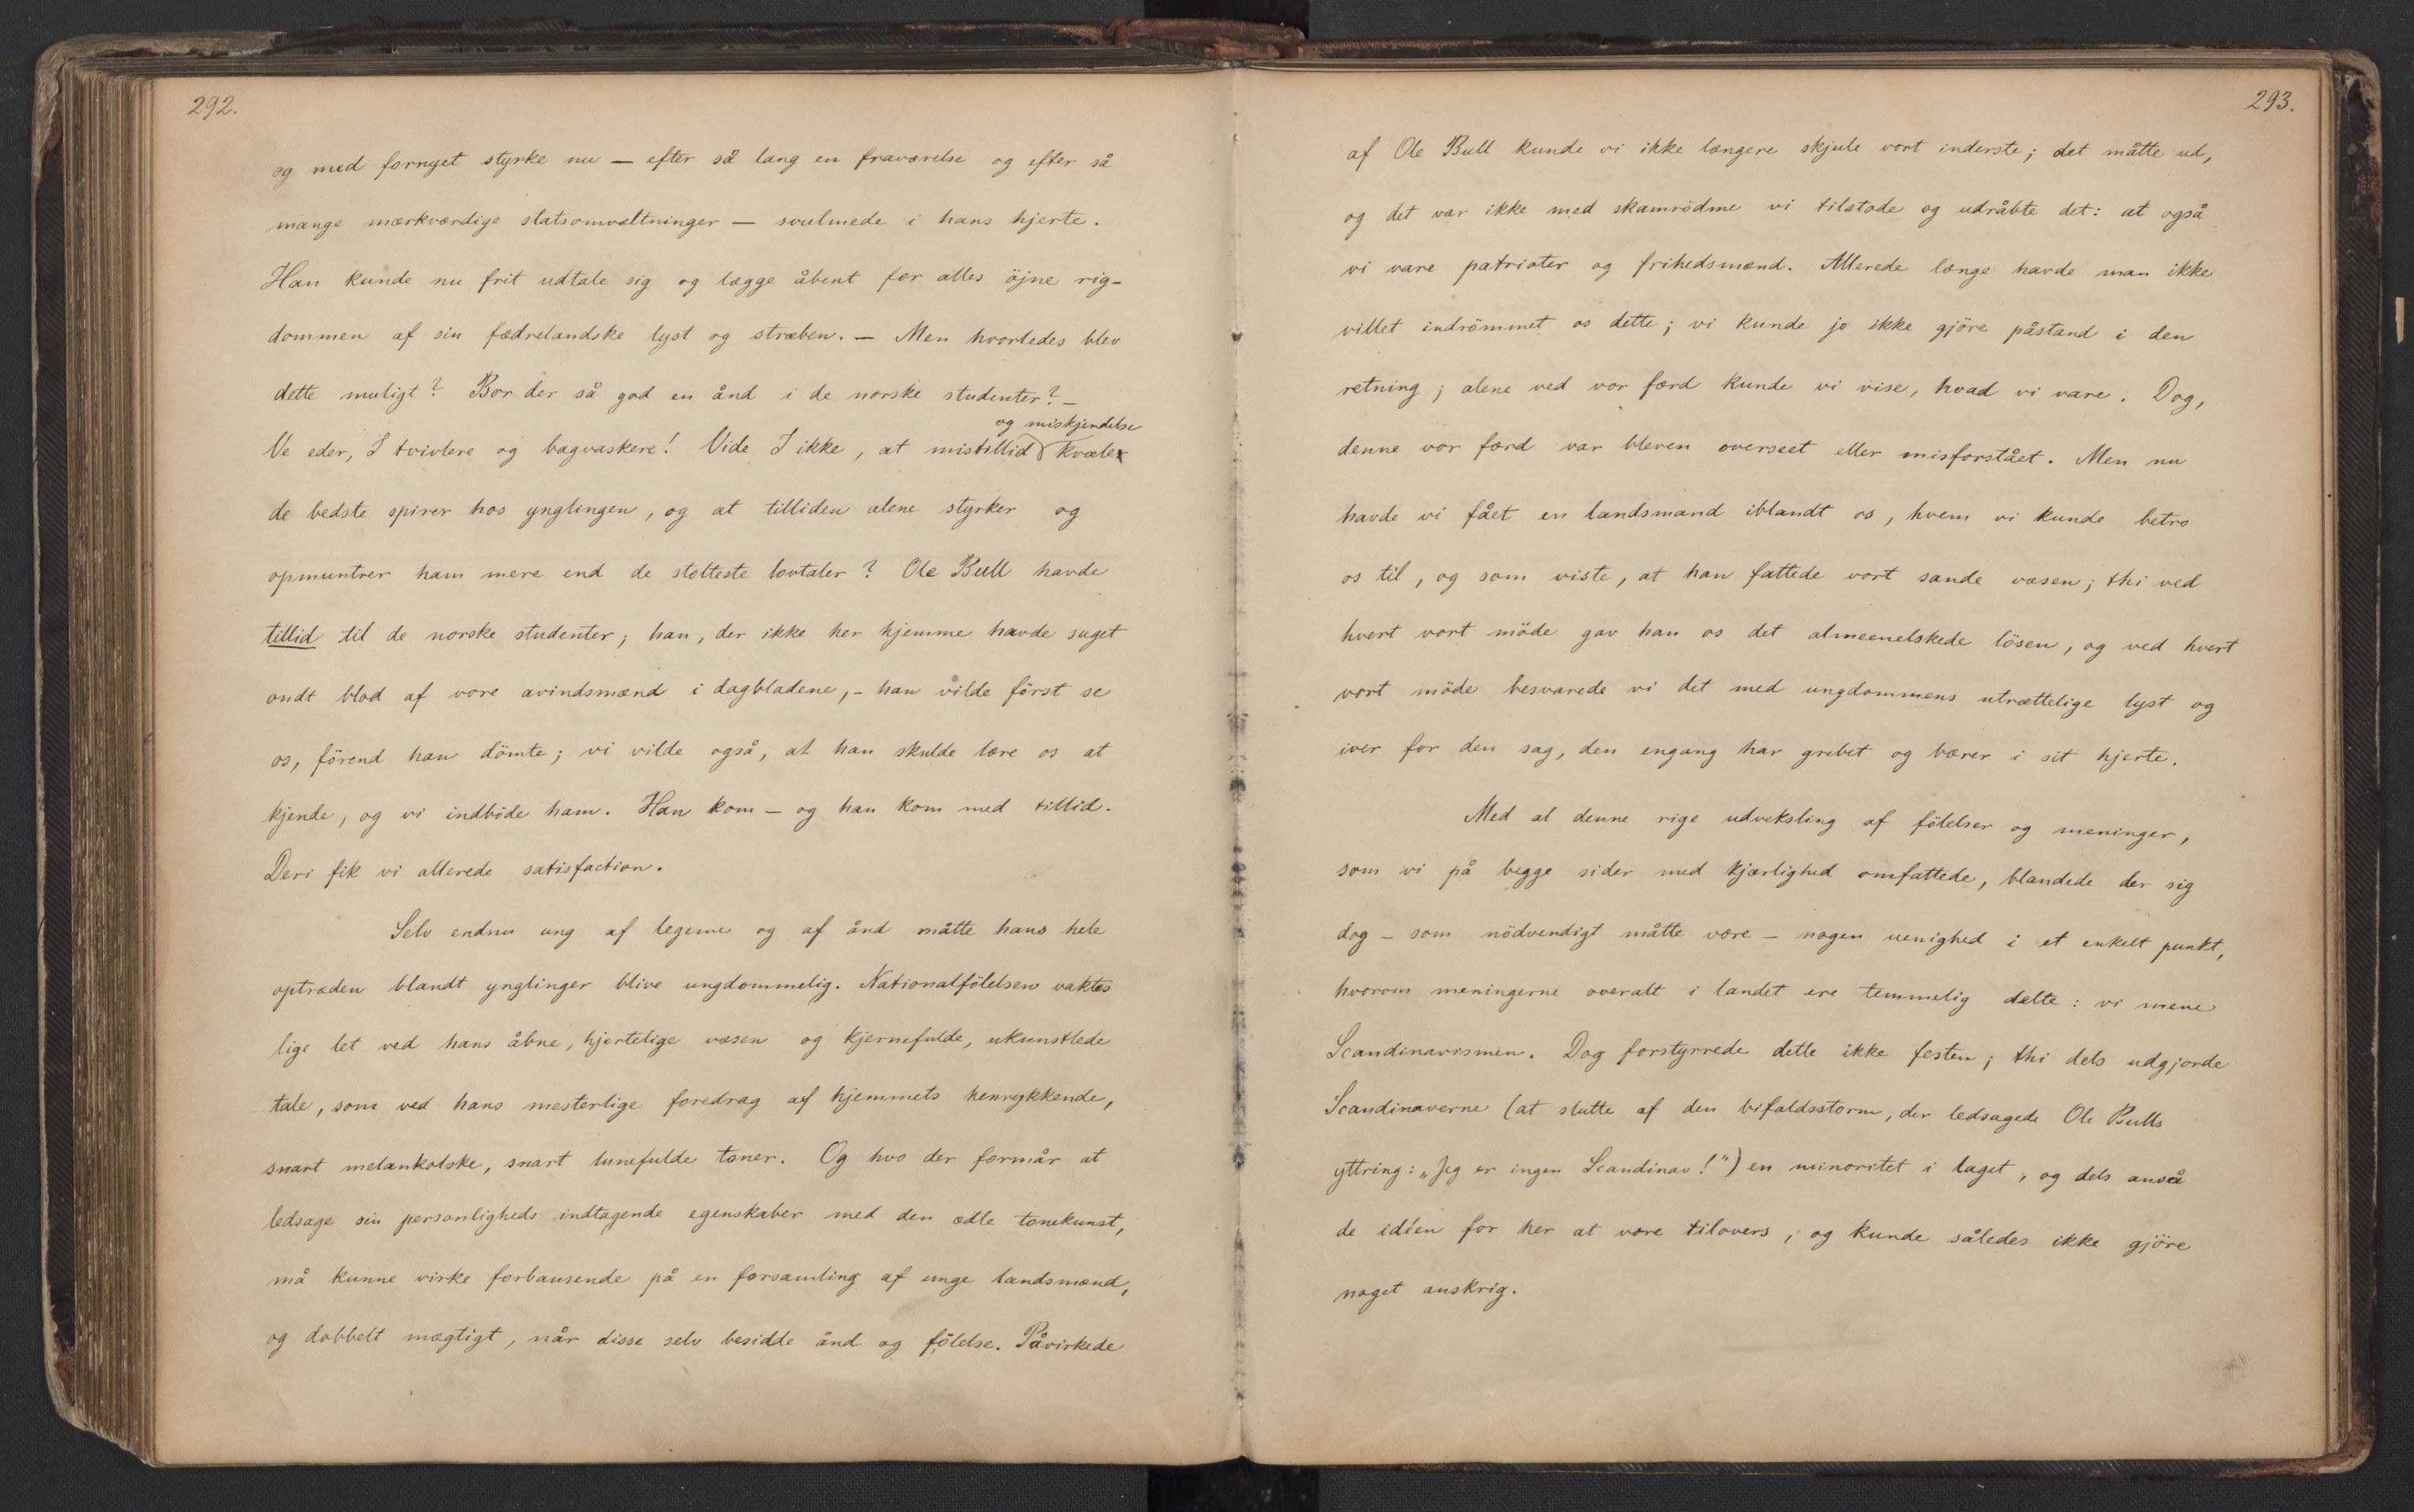 292.
og med fornyet styrke nu — efter så lang en fraværelse og efter så
mange mærkværdige statsomvæltninger — svulmede i hans hjerte.
Han kunde nu frit udtale sig og lægge åbent for alles öjne rig-
dommen af sin fædrelandske lyst og stræben. — Men hvorledes blev
dette muligt? Bor der så god en ånd i de norske studenter? —
og miskjendelse
Ve eder, I tvivlere og bagvaskere! Vide I ikke, at mistillid kvæler
de bedste spirer hos ynglingen, og at tilliden alene styrker og
opmuntrer ham mere end de stolteste lovtaler? Ole Bull havde
tillid til de norske studenter; han, der ikke her hjemme havde suget
ondt blod af vore avindsmænd i dagbladene, - han vilde först se
os, förend han dömte; vi vilde også, at han skulde lære os at
kjende, og vi indböde ham. Han kom — og han kom med tillid.
Deri fik vi allerede satisfaction.
Selv endnu ung af legeme og af ånd måtte hans hele
optræden blandt ynglinger blive ungdommelig. Nationalfölelsen vaktes
lige let ved hans åbne, hjertelige væsen og kjernefulde, ukunstlede
tale, som ved hans mesterlige foredrag af hjemmets henrykkende,
snart melankolske, snart lunefulde toner. Og hvo der formår at
ledsage sin personligheds indtagende egenskaber med den ædle tonekunst,
må kunne virke forbausende på en forsamling af unge landsmænd,
og dobbelt mægtigt, når disse selv besidde ånd og fölelse. Påvirkede
293.
af Ole Bull kunde vi ikke længere skjule vort inderste; det måtte ud,
og det var ikke med skamrödme vi tilstode og udråbte det: at også
vi vare patrioter og frihedsmænd. Allerede længe havde man ikke
villet indrömmet os dette; vi kunde jo ikke gjöre påstand i den
retning; alene ved vor færd kunde vi vise, hvad vi vare. Dog,
denne vor færd var bleven overseet eller misforstået. Men nu
havde vi fået en landsmand iblandt os, hvem vi kunde betro
os til, og som viste, at han fattede vort sande væsen; thi ved
hvert vort möde gav han os det almeenelskede lösen, og ved hvert
vort möde besvarede vi det med ungdommens utrættelige lyst og
iver for den sag, den engang har grebet og bærer i sit hjerte.
Med al denne rige udveksling af fölelser og meninger,
som vi på begge sider med kjærlighed omfattede, blandede der sig
dog — som nödvendigt måtte være — nogen uenighed i et enkelt punkt,
hvorom meningerne overalt i landet ere temmelig delte: vi mene
Scandinavismen. Dog forstyrrede dette ikke festen; thi dels udgjorde
Scandinaverne (at slutte af den bifaldsstorm, der ledsagede Ole Bulls
yttring: „Jeg er ingen Scandinav!") en minoritet i laget, og dels anså
de idéen for her at være tilovers, og kunde således ikke gjöre
noget anskrig.